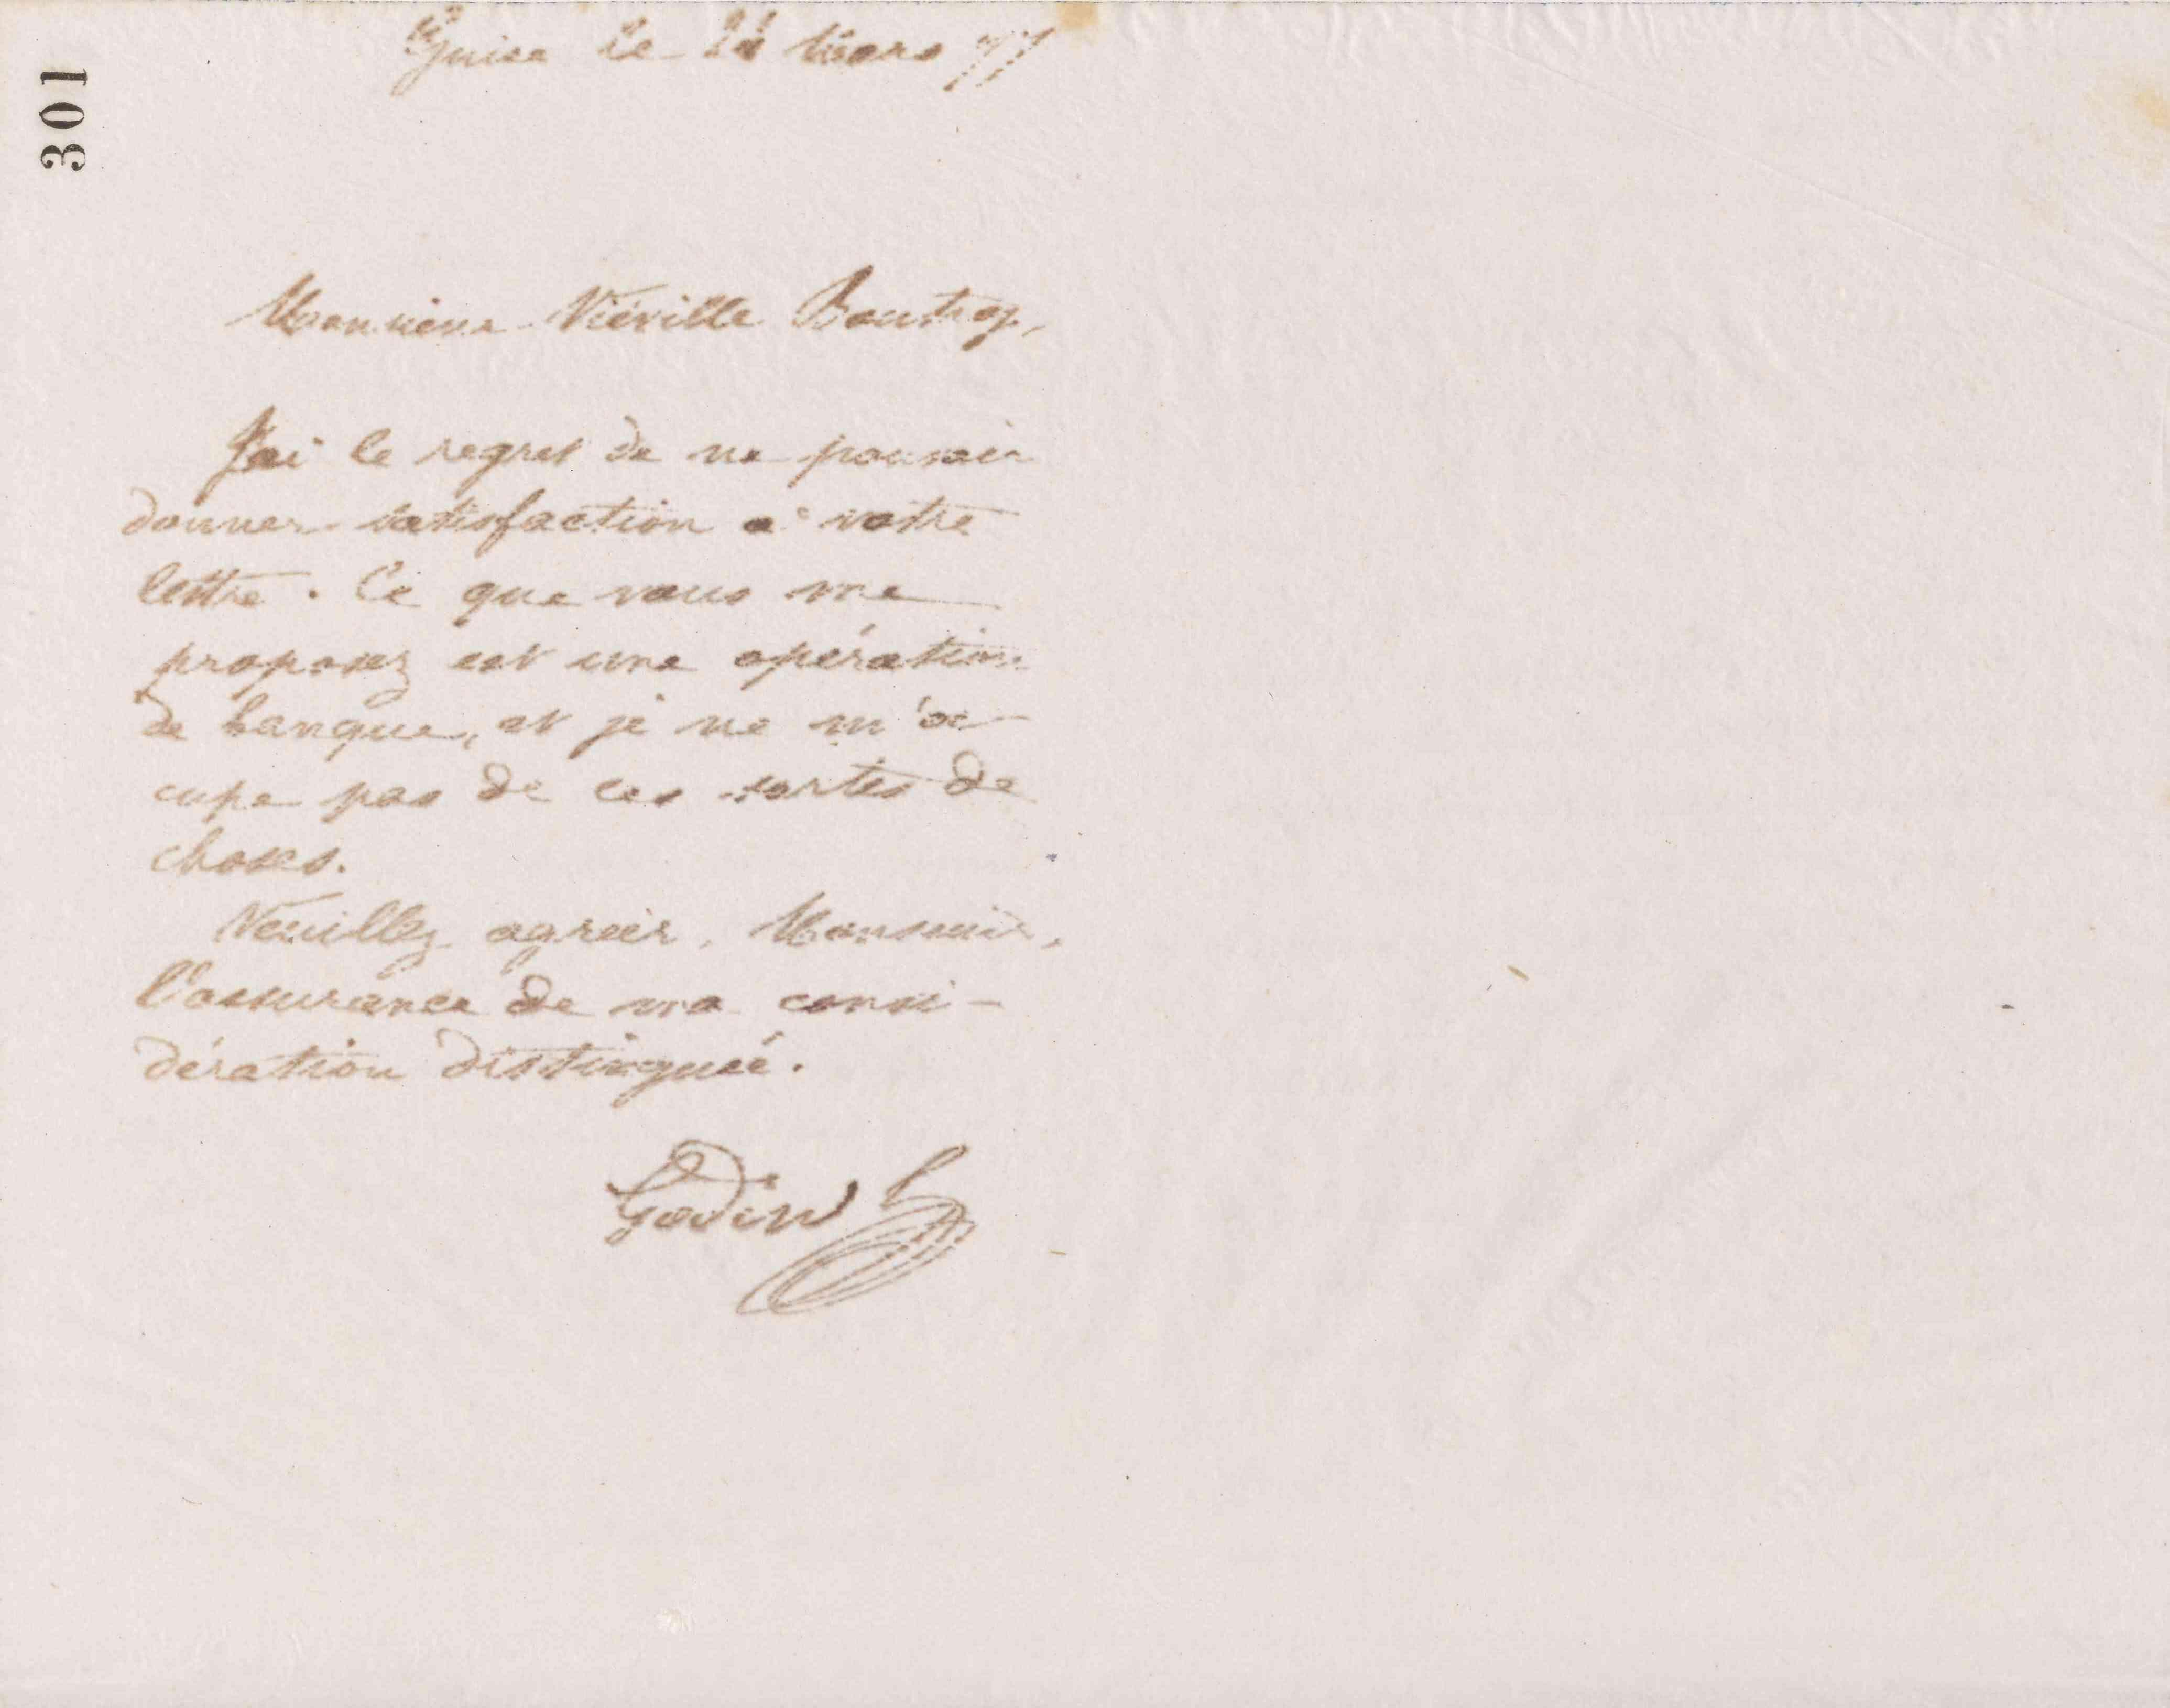 301
Guise le mars 77
Monsieur Viéville Boutroy,
J'ai le regret de ne pouvoir
donner satisfaction à votre
lettre. Ce que vous me
proposez est une opération
de banque, et je ne m'oc-
cupe pas de ces sortes de
choses.
Veuillez agréer, Monsieur,
l'assurance de ma consi-
dération distinguée.
Godin